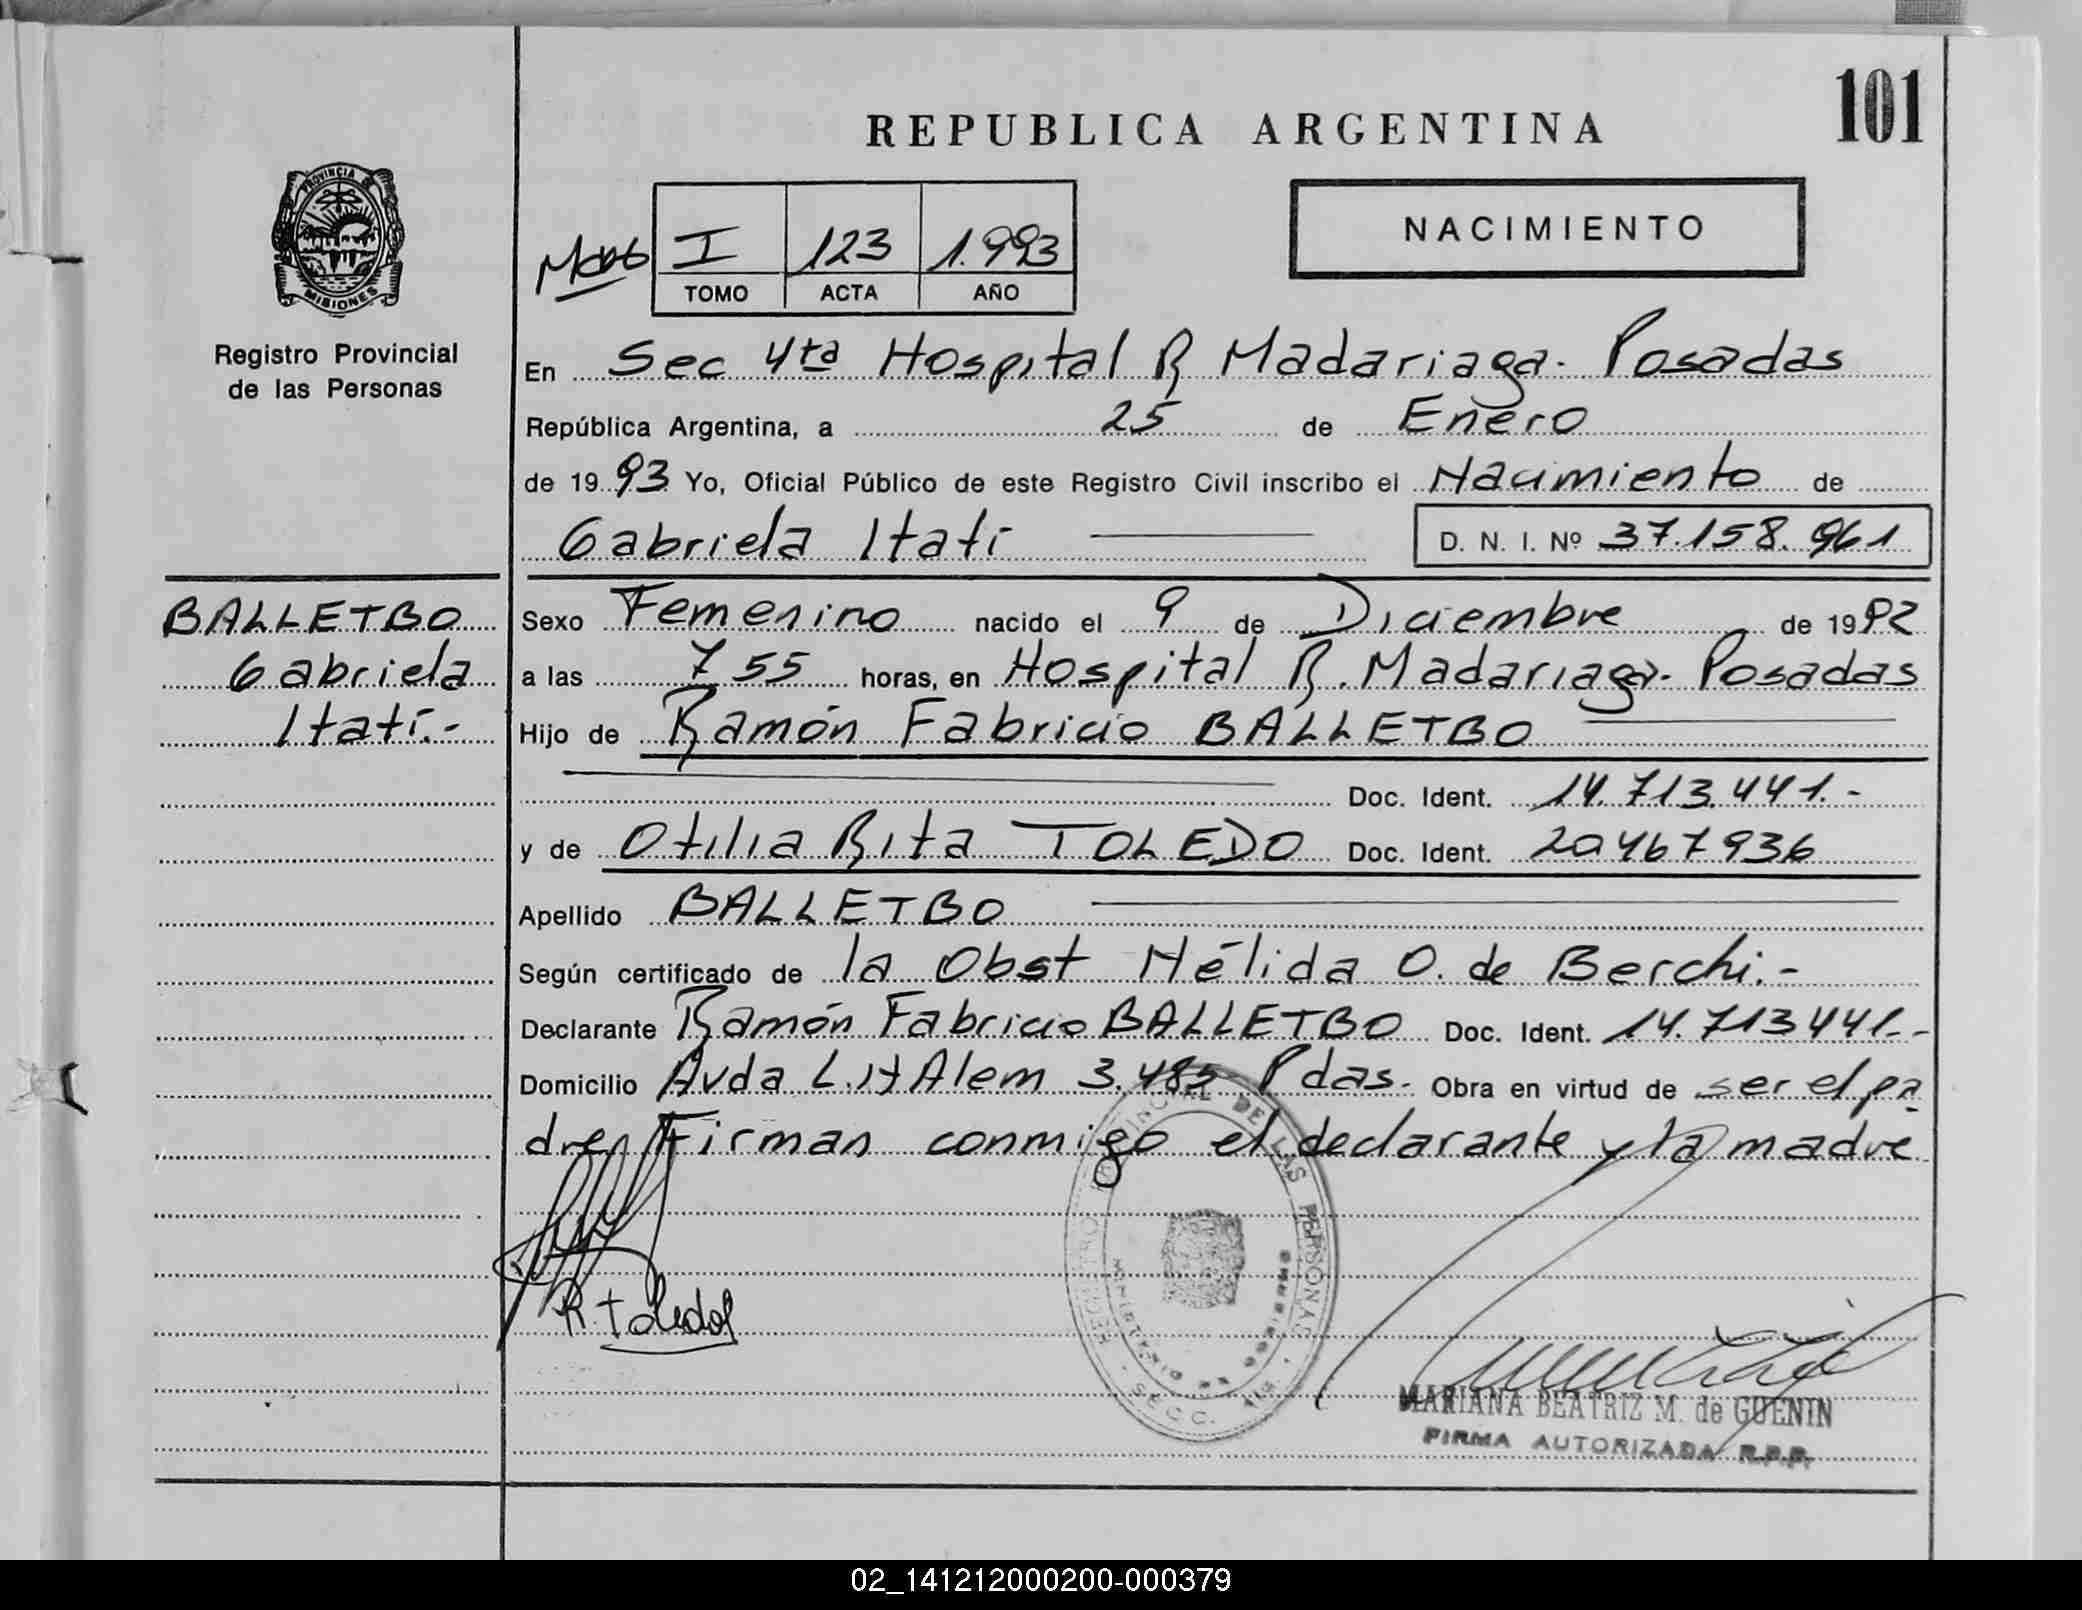 101
REPUBLICA ARGENTINA
PROVINCIA DE MISIONES
Registro Provincial
de las Personas
I 123 1.993
TOMO ACTA AÑO
NACIMIENTO
En Sec 4ta Hospital R Madariaga. Posadas
República Argentina, a 25 de Enero
de 1993 Yo, Oficial Público de este Registro Civil inscribo el Nacimiento de
Gabriela Itatí
D. N. I. Nº 37.158.961
BALLETBO
Gabriela
Itatí.-
Sexo Femenino nacido el 9 de Diciembre de 1992
a las 7 55 horas, en Hospital R. Madariaga. Posadas
Hijo de Ramón Fabricio BALLETBO
Doc. Ident. 14.713.441.-
y de Otilia Rita TOLEDO Doc. Ident. 20467936
Apellido BALLETBO
Según certificado de la Obst Nélida O. de Berchi.-
Declarante Ramón Fabricio BALLETBO Doc. Ident. 14.713441.-
Domicilio Avda L.N Alem 3.485 Pdas. Obra en virtud de ser el pa
dre, Firman conmigo el declarante y la madre
R. Toledo
REGISTRO PROVINCIAL DE LAS PERSONAS
MINISTERIO DE GOBIERNO
SECC. 4ta.
MARIANA BEATRIZ M. de GUENIN
FIRMA AUTORIZADA R.P.P.
02_141212000200-000379